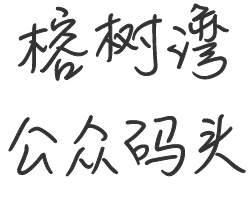 榕树湾
公众码头